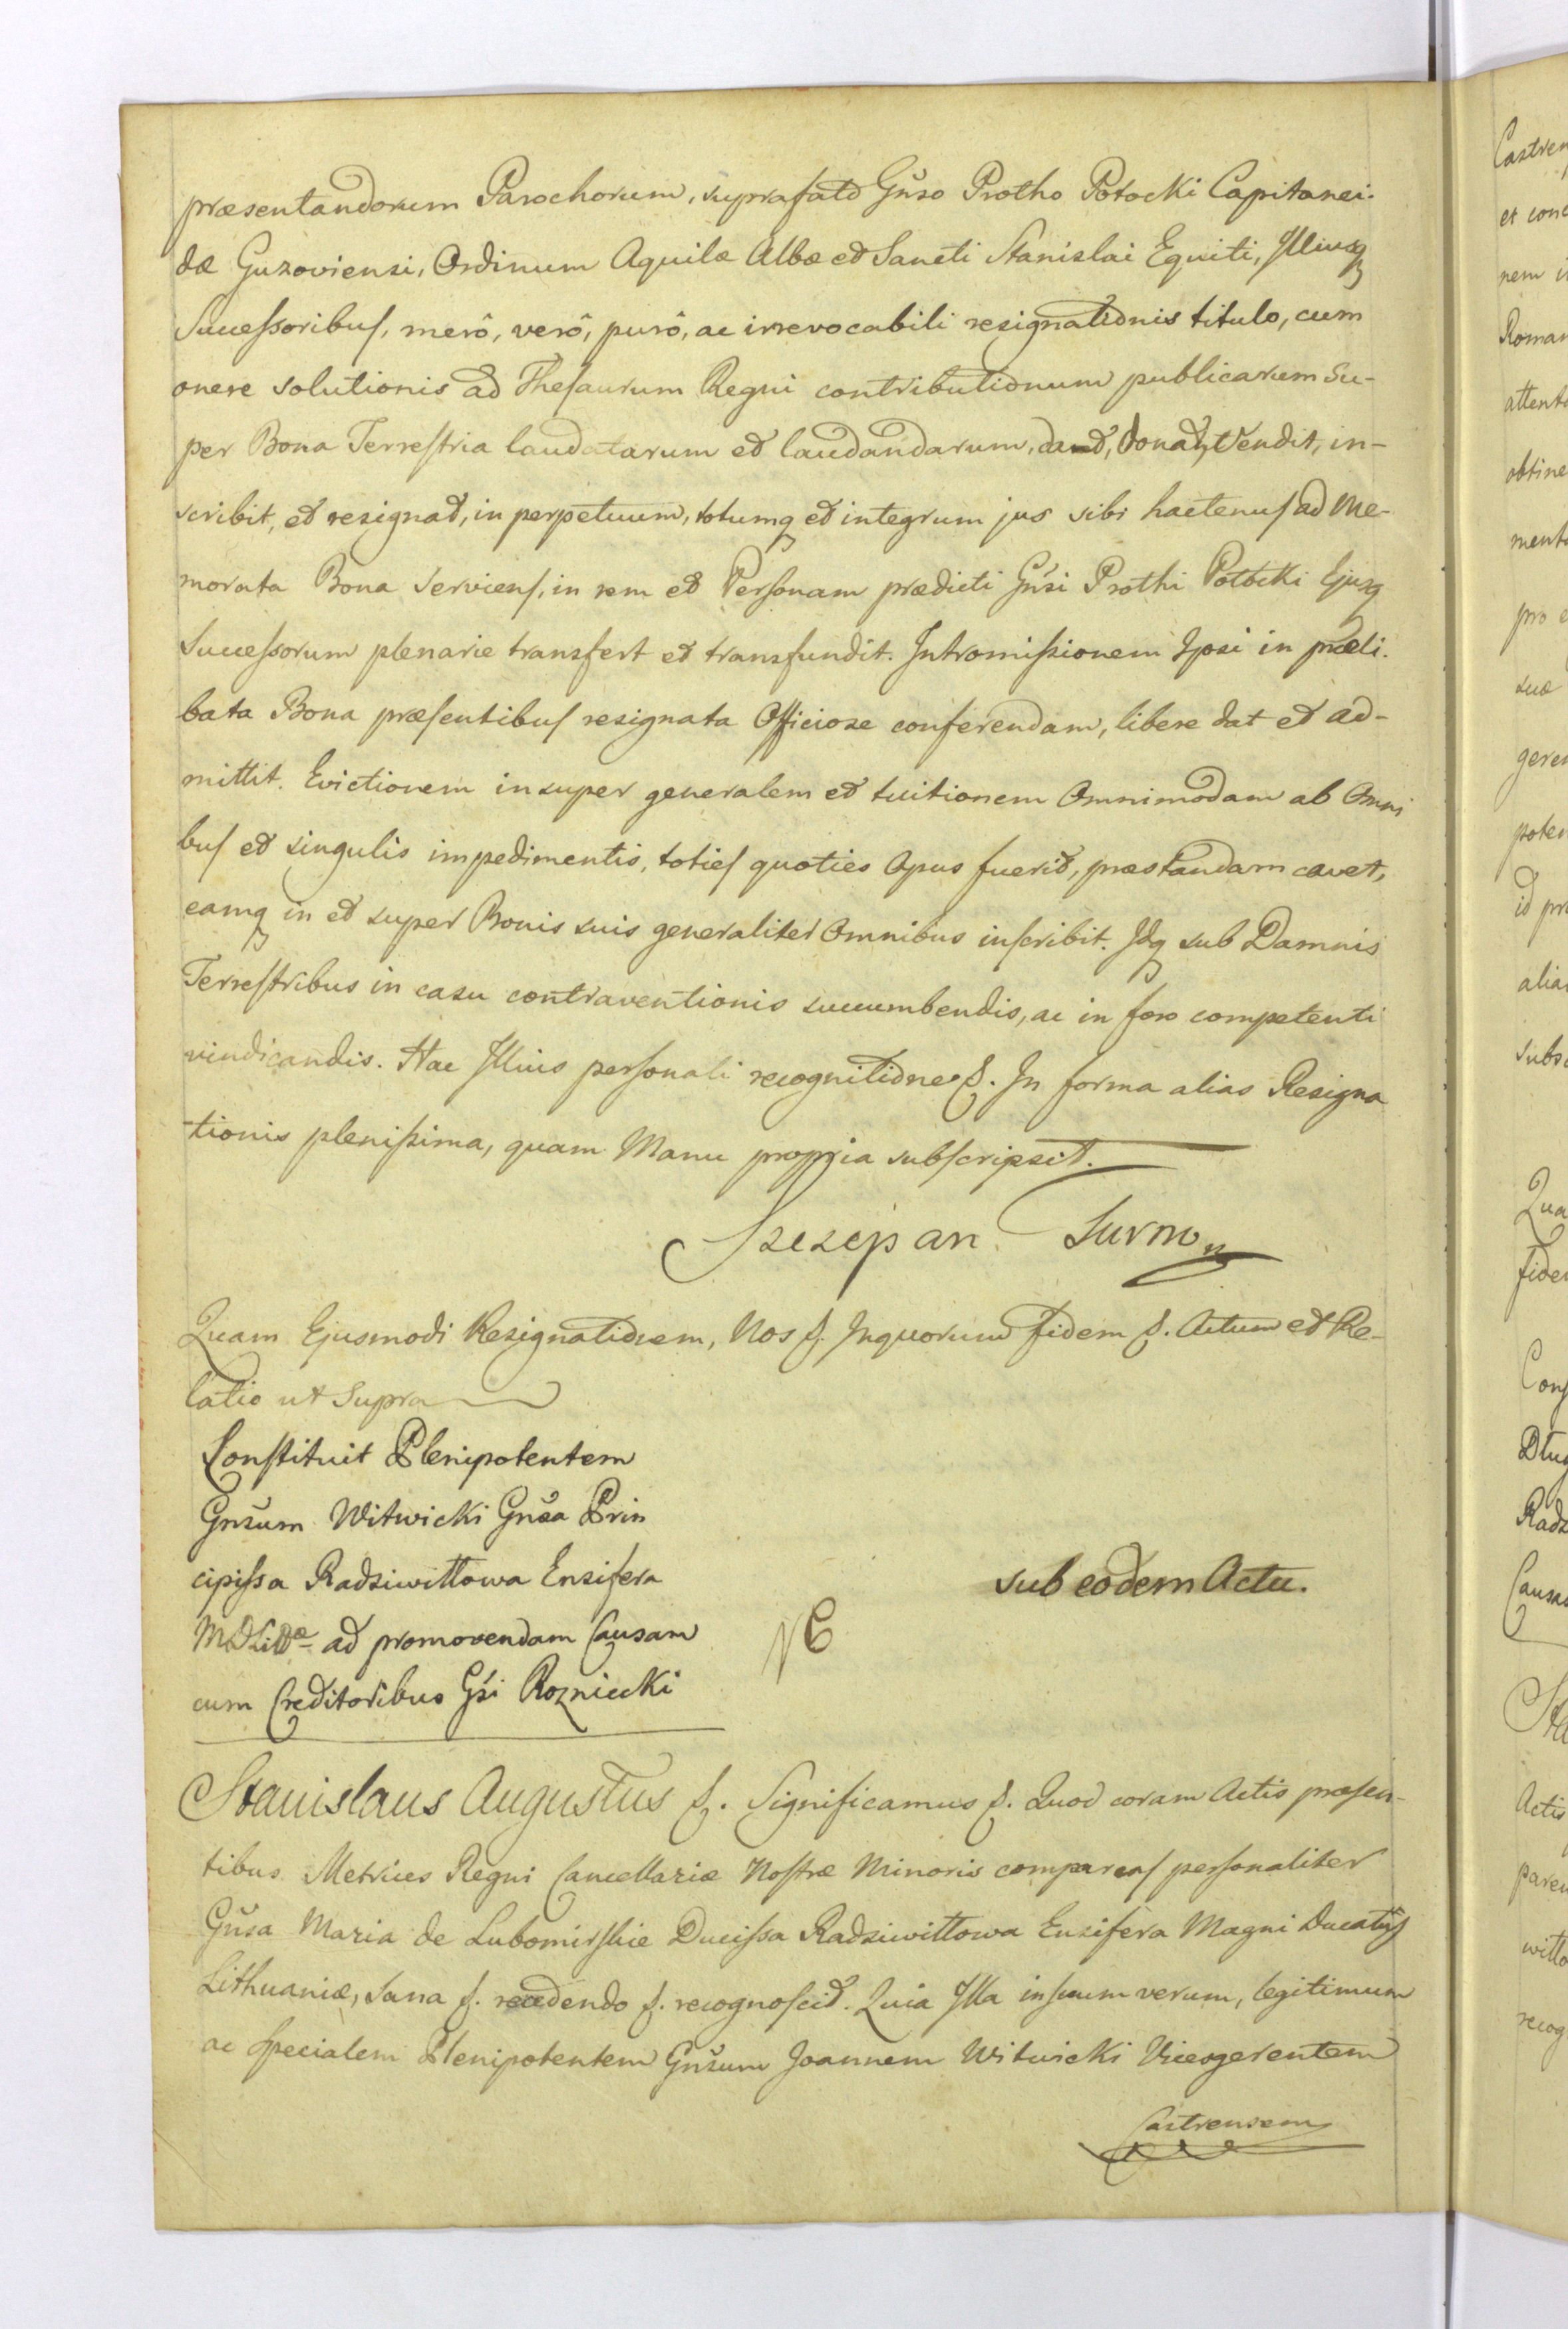 præsentandorum Parochorum, suprafato Gñso Protho Potocki Capitanei-
dæ Guzoviensi, Ordinum Aquilæ Albæ et Sancti Stanislai Equiti, Illiusq
Successoribus, merô, verô, purô, ac irrevocabili resignationis titulo, cum
onere solutionis ad Thesaurum Regni contributionum publicarum Su-
per Bona Terrestria laudatarum et laudandarum, dat, donat, Vendit, in-
scribit, et resignat, in perpetuum, totumq et integrum jus sibi hactenus ad Me-
morata Bona serviens, in rem et Personam prædicti Gñsi Prothi Potocki Ejusq
Successorum plenarie transfert et transfundit. Intromissionem Ipsi in præli-
bata Bona præsentibus resignata Officiose conferendam, libere dat et ad-
mittit. Evictionem insuper generalem et tuitionem Omnimodam ab Omni
bus et singulis impedimentis, toties quoties Opus fuerit, præstandam cavet,
eamq in et super Bonis suis generaliter Omnibus inscribit. Idq sub Damnis
Terrestribus in casu contraventionis succumbendis, ac in foro competenti
vindicandis. Hac Illius personali recognitione &. In forma alias Resigna
tionis plenissima, quam Manu propria subscripsit.
Szczepan Turno
Quam Ejusmodi Resignationem, Nos &. Inquorum fidem &. Actum et Re-
latio ut Supra
Constituit Plenipotentem
Gnšum Witwicki Gnša Prin
cipissa Radziwiłłowa Ensifera
MDLittæ ad promovendam Causam
cum Creditoribus Gsi Rozniecki
sub eodem Actu.
Stanislaus Augustus &. Significamus &. Quod coram Actis præsen-
tibus Metrices Regni Cancellariæ Nostræ Minoris comparens personaliter
Gñsa Maria de Lubomirskie Ducissa Radziwiłłowa Ensifera Magni Ducatûs
Lithuaniæ, sana &. recedendo &. recognoscit. Quia Illa insuum verum, legitimum
ac specialem Plenipotentem Gnšum Joannem Witwicki Vicesgerentem
Castrensem